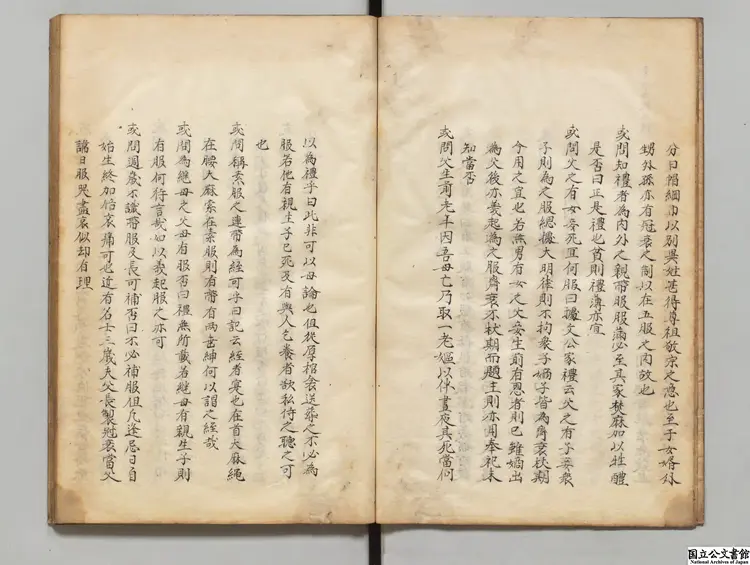 分曰帽綱巾以別異姓苍得尊祖敬宗之意也至于女婿外
甥外孫亦有冠衰之制以在五服之内故也
或問知禮者為内外之親帶服服滿必至其家焚麻加以牲醴
是否曰正是禮也貧則禮薄亦宜
或問父之有女妾死宜何服曰據文公家禮云父之有子妾衆
子則為之服緦據大明律則不拘衆子嫡子皆為齊衰杖期
今用之宜也若無男有女之父妾生前有恩者則已雖嫡出
為父後亦義起為之服齊衰不杖期而題主則亦用奉祀未
知當否
或問父生前老年因吾母亡乃取一老嫗以伴晝夜其死當何
以為禮乎曰此非可以母論也但從厚棺衾送葬之不必為
服若他有親生子已死及有與人乞養者欲私侍之聽之可
也
或問稱素服之連帶為絰可乎曰記云絰者實也在首大麻繩
在腰大麻索在素服則有帶有两耑紳何以謂之絰哉
或問為繼母之父母有服否曰禮無所載若繼母有親生子則
有服何待言哉如以義起服之亦可
或問週歲不識帶服及長可補否曰不必補服但凡逢忌日自
始生終加倍哀痛可也近有名士三歲失父長製衰當父
諱日服哭盡哀似却有理
国立公文書館
National Archives of Japan